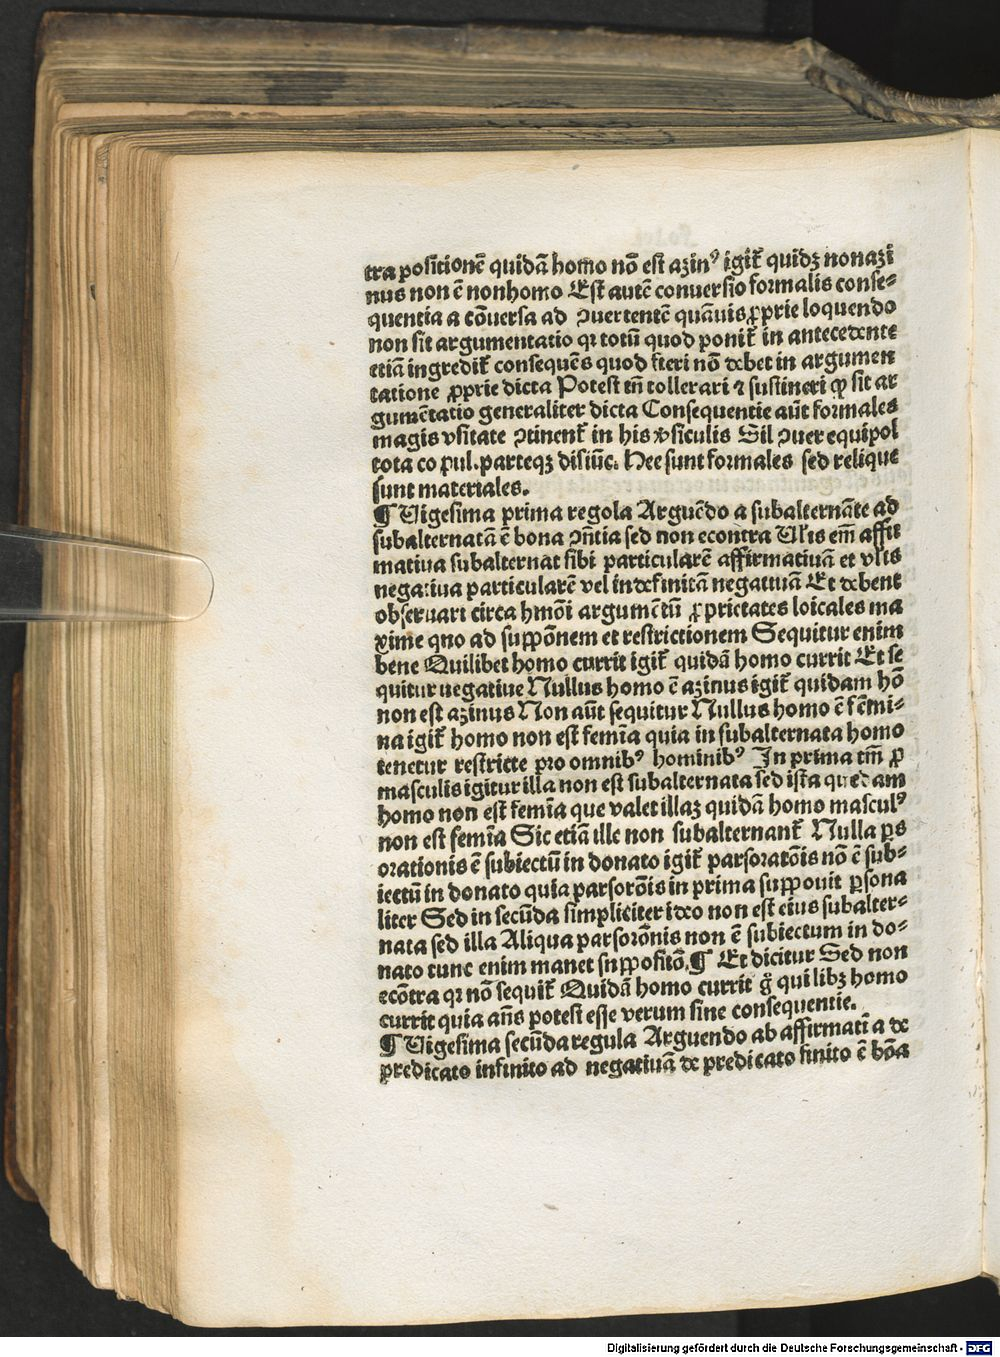 tra positionē quidā homo nō est azinꝰ igit̄ quidꝫ nonazi
nus non ē nonhomo Est autē conuersio formalis conse⸗
quentia a cōuersa ad ꝯuertentē quāuis ꝓprie loquendo
non sit argumentatio qꝛ totū quod ponit̄ in antecedente
etiā ingredit̄ consequēs quod fieri nō debet in argumen
tatione ꝓprie dicta Potest tn̄ tollerari ⁊ sustineri ꝙ sit ar
gumētatio generaliter dicta Consequentie aūt formales
magis vsitate ꝯtinent̄ in his v̓siculis Sil ꝯuer equipol
tota co pul. parteqꝫ disiūc. Hec sunt formales sed relique
sunt materiales.
¶ Uigesima prima regola Arguēdo a subalternāte ad
subalternatā ē bona ꝯn̄tia sed non econtra Ul̓is em̄ affir
matiua subalternat sibi particularē affirmatiuā et vl̓is
negatiua particularē vel indefinitā negatiuā Et debent
obseruari circa hmōi argumētū ꝓprietates loicales ma
xime qno ad suppōnem et restrictionem Sequitur enim
bene Quilibet homo currit igit̄ quidā homo currit Et se
quitur negatiue Nullus homo ē azinus igit̄ quidam hō
non est azinus Non aūt sequitur Nullus homo ē fēmi⸗
na igit̄ homo non est femīa quia in subalternata homo
tenetur restricte pro omnibꝰ hominibꝰ In prima tm̄ ꝓ
masculis igitur illa non est subalternata sed ista quedam
homo non est femīa que valet illaꝫ quidā homo masculꝰ
non est femīa Sic etiā ille non subalternant̄ Nulla ꝑs
orationis ē subiectū in donato igit̄ parsoratōis nō ē sub⸗
iectū in donato quia parsorōis in prima supponit ꝑsona
liter Sed in secūda simpliciter ideo non est eius subalter⸗
nata sed illa Aliqua parsorōnis non ē subiectum in do⸗
nato tunc enim manet snppositō. ¶ Et dicitur Sed non
ecōtra qꝛ nō sequit̄ Quidā homo currit gͦ quilibꝫ homo
currit quia an̄s potest esse verum sine consequentie.
¶ Uigesima secūda regula Arguendo ab affirmatīa de
predicato infinito ad negatiuā de predicato finito ē bōa
Digitalisierung gefördert durch die Deutsche Forschungsgemeinschaft - DFG